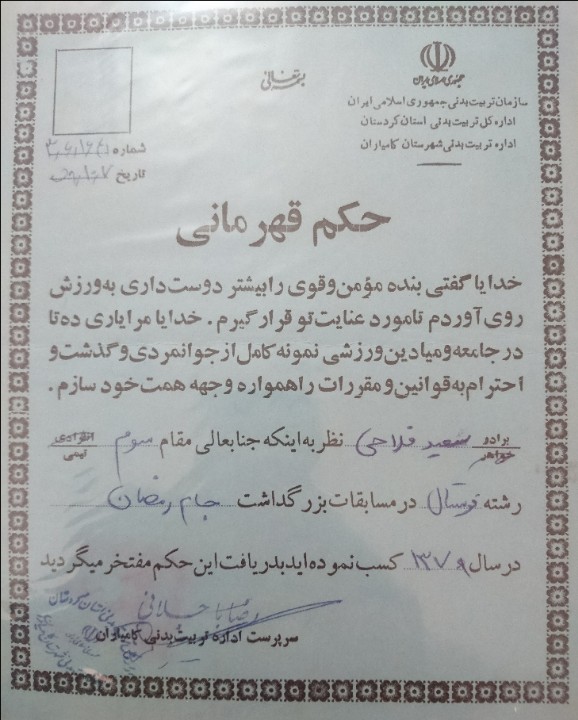 بسمه تعالی
جمهوری اسلامی ایران
سازمان تربیت بدنی جمهوری اسلامی ایران
اداره کل تربیت بدنی استان کردستان
اداره تربیت بدنی شهرستان کامیاران
شماره
تاریخ
حکم قهرمانی
خدایا گفتی بنده مؤمن و قوی را بیشتر دوست داری به ورزش
روی آوردم تا مورد عنایت تو قرار گیرم . خدایا مرا یاری ده تا
در جامعه و میادین ورزشی نمونه کامل از جوانمردی و گذشت و
احترام به قوانین و مقررات را همواره وجهه همت خود سازم .
برادر
خواهر
سعید فلاحی نظر به اینکه جنابعالی مقام سوم
انفرادی
تیمی
رشته فوتسال در مسابقات بزرگداشت جام رمضان
در سال ۱۳۷۹ کسب نموده اید بدریافت این حکم مفتخر میگردید
سرپرست اداره تربیت بدنی کامیاران